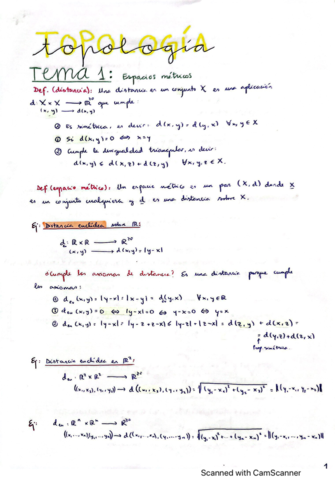 topología
TOPOLOGÍA
Tema 1: Espacios métricos
Def. (distancia): Una distancia en un conjunto X es una aplicación
d: X × X → ℝ≥0 que cumple:
(x, y) → d(x,y)
① Es simétrica, es decir: d(x,y) = d(y,x) ∀x,y ∈ X
② Si d(x,y) = 0 ⇔ x=y
③ Cumple la desigualdad triangular, es decir:
d(x,y) ≤ d(x,z) + d(z,y) ∀x,y,z ∈ X.
Def (espacio métrico): Un espacio métrico es un par (X,d) donde X
es un conjunto cualquiera y d es una distancia sobre X.
Ej: Distancia euclídea sobre ℝ:
d: ℝ × ℝ → ℝ≥0
(x,y) → d(x,y) = |y-x|
¿Cumple los axiomas de distancia? Es una distancia porque cumple
los axiomas:
(x,y) = |y-x| = |x-y| = (y,x) ∀x,y ∈ ℝ
(x,y) = 0 ⇔ |y-x| = 0 ⇔ y-x=0 ⇔ y=x
(x,y) = |y-x| = |y-z+z-x| ≤ |y-z| + |z-x| = d(z,y) + d(x,z) =
= d(y,z) + d(z,x)
Ej: Distancia euclídea en ℝ²:
: ℝ² × ℝ² → ℝ≥0
Ej: : ℝⁿ × ℝⁿ → ℝ≥0
1
Scanned with CamScanner